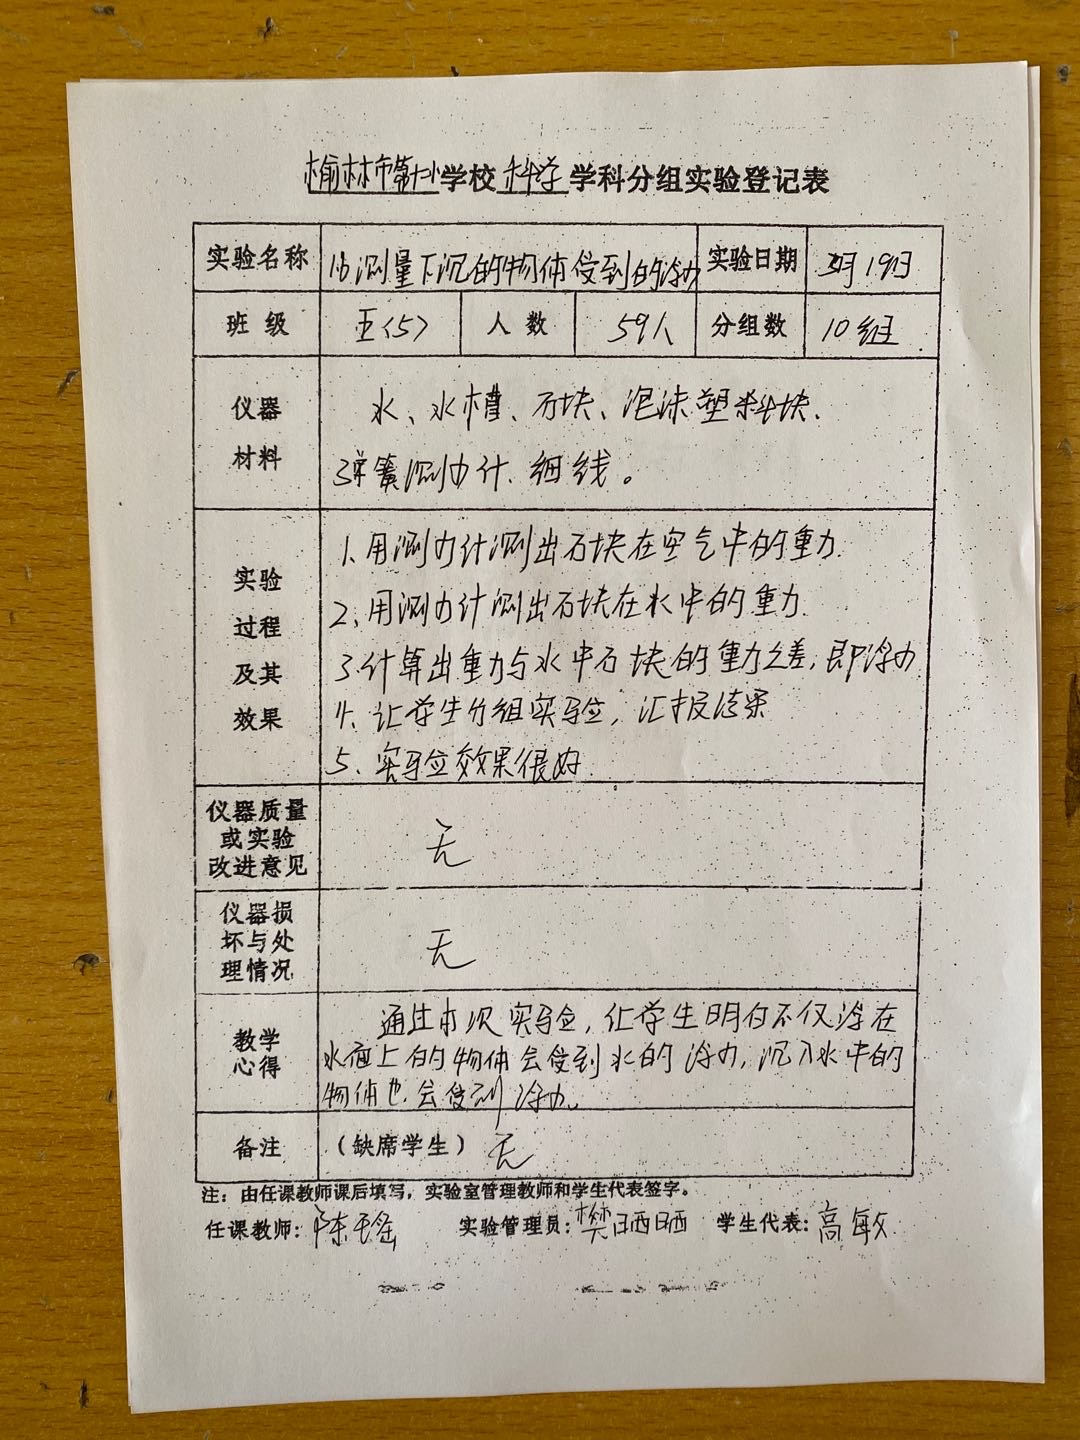 榆林市第十小学校科学学科分组实验登记表
实验名称 16测量下沉的物体受到的浮力 实验日期 3月19日
班级 五(5) 人数 59人 分组数 10组
仪器材料 水、水槽、石块、泡沫塑料块、
弹簧测力计、细线。
实验过程及其效果 1、用测力计测出石块在空气中的重力.
2、用测力计测出石块在水中的重力.
3.计算出重力与水中石块的重力之差,即浮力
4、让学生分组实验,汇报结果
5、实验效果很好
仪器质量或实验改进意见 无
仪器损坏与处理情况 无
教学心得 通过本次实验,让学生明白不仅浮在
水面上的物体会受到水的浮力,沉入水中的
物体也会受到浮力。
备注 (缺席学生) 无
注:由任课教师课后填写,实验室管理教师和学生代表签字。
任课教师:陈瑶 实验管理员:樊晒晒 学生代表:高敏